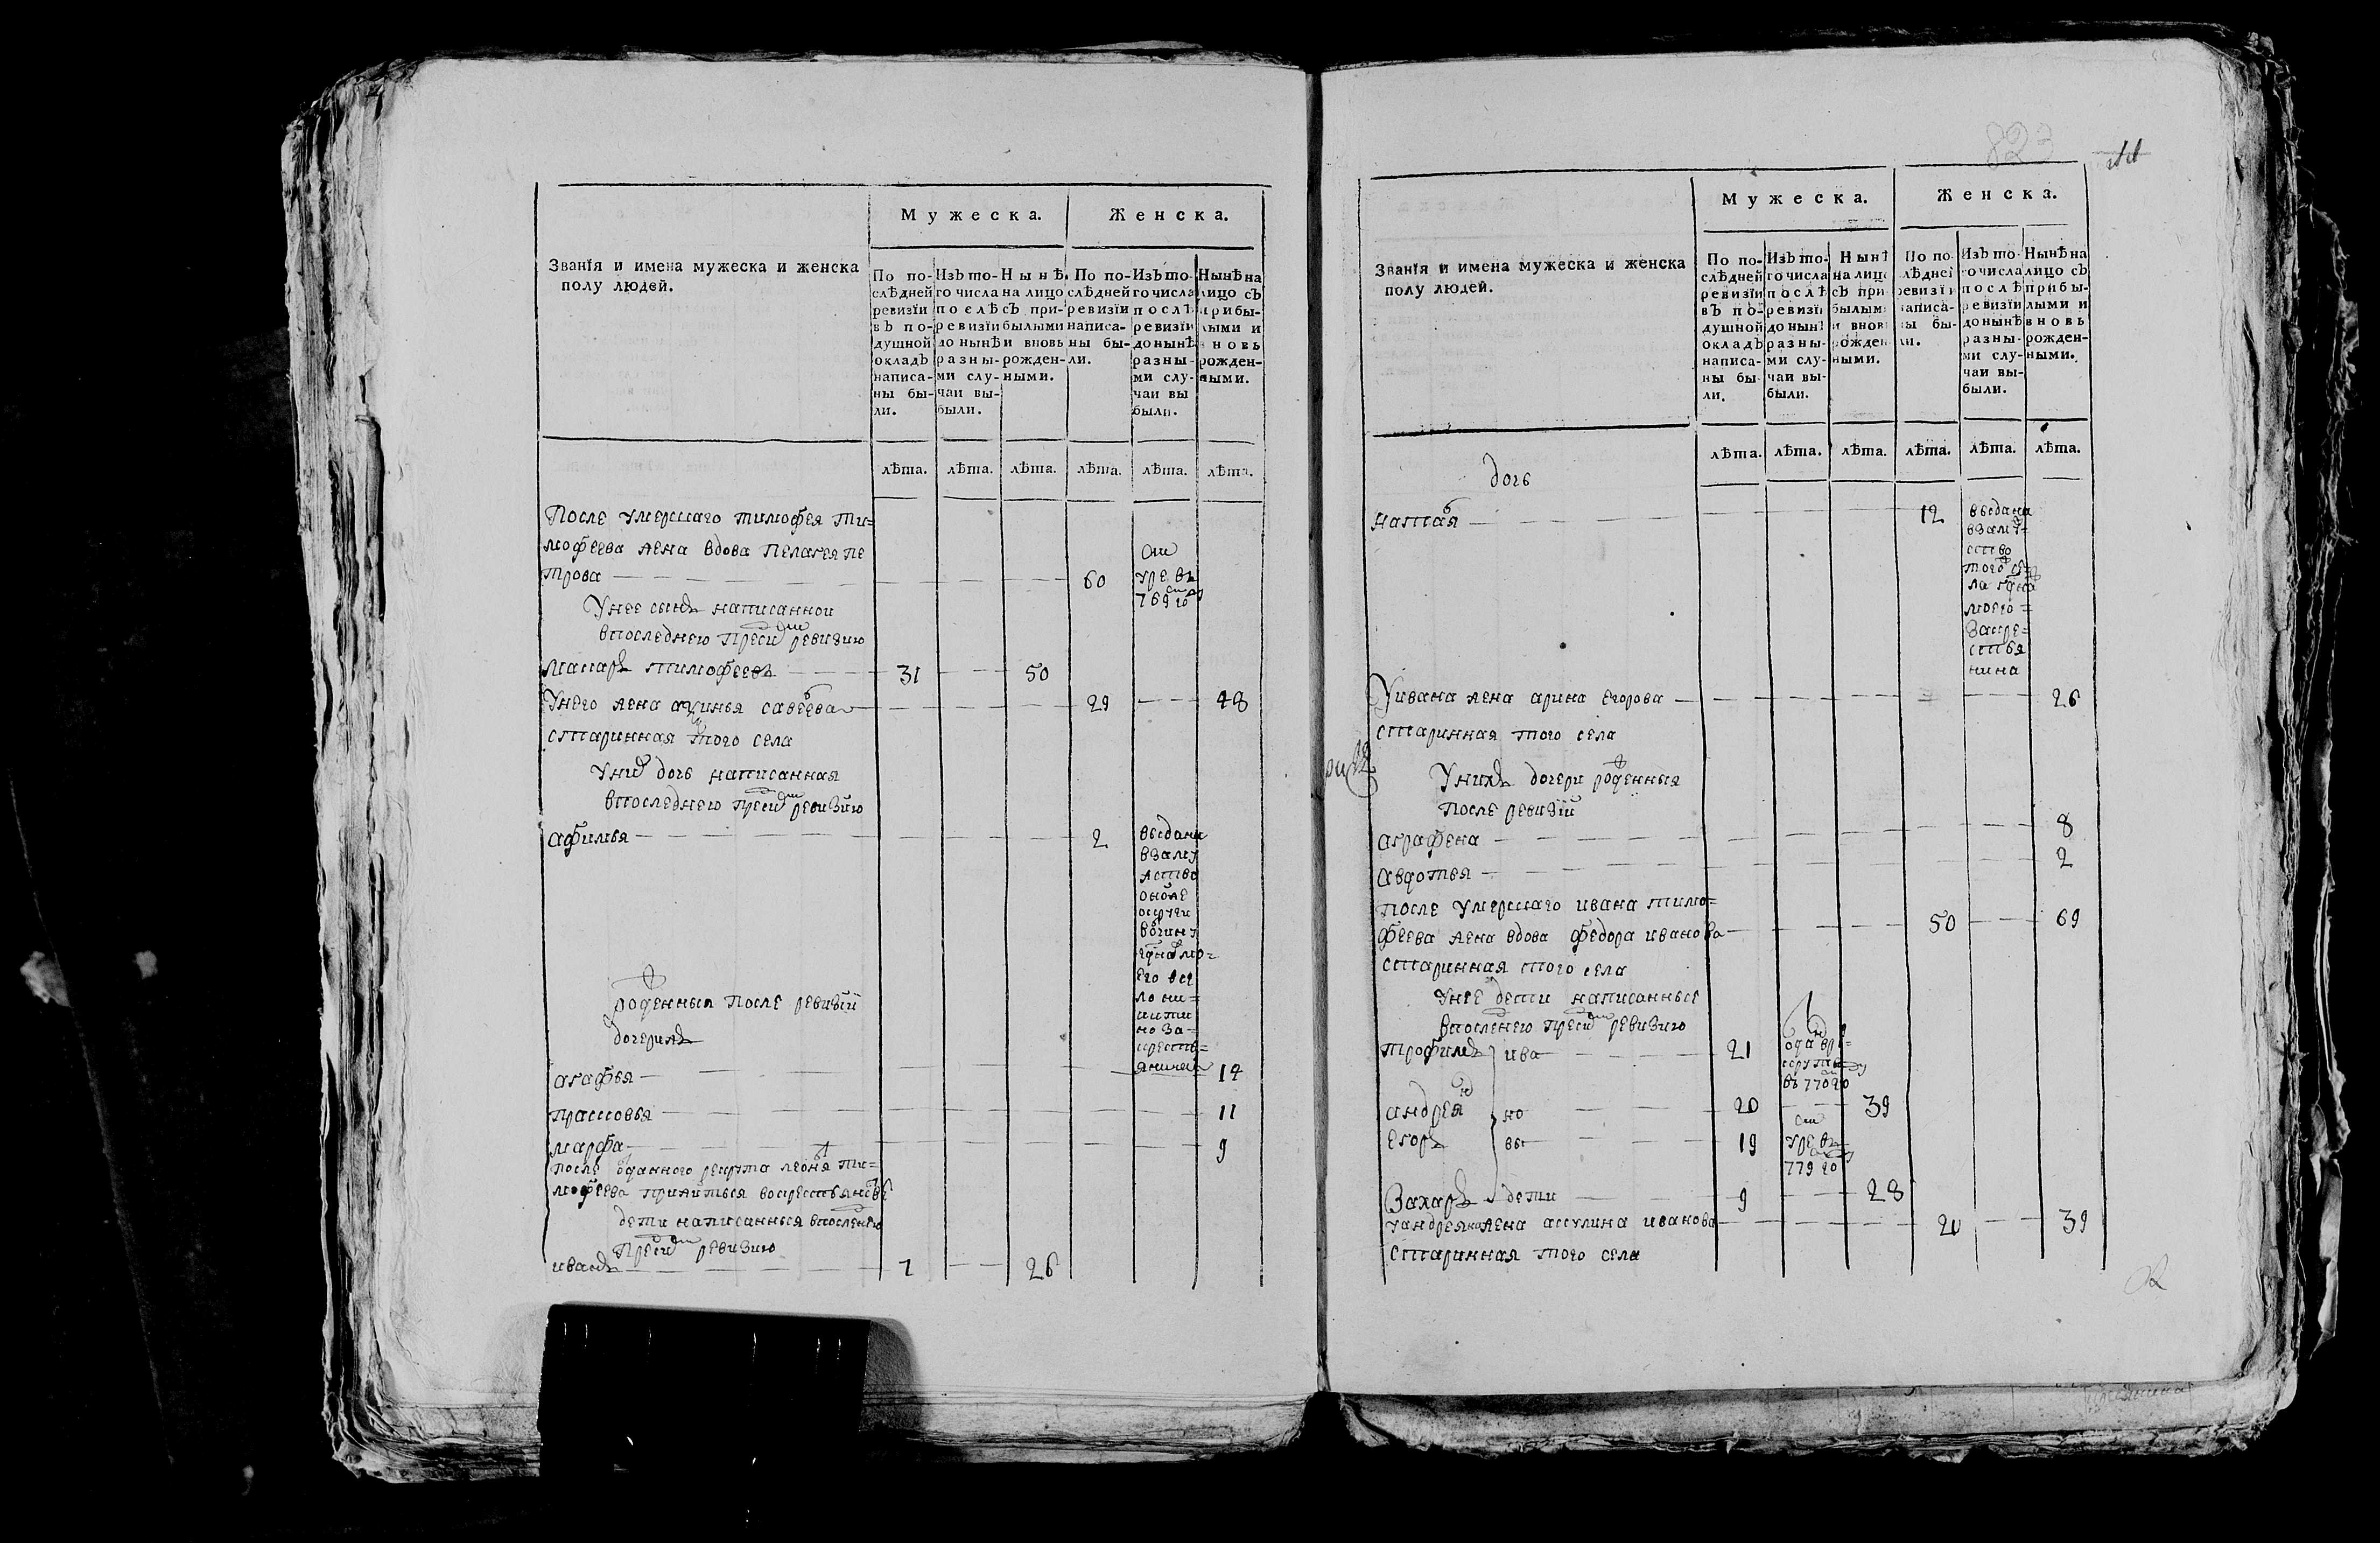 Мужеска. Женска.
Званїя и имена мужеска и женска
полу людей.
По по-
слѣдней
ревизїи
въ по-
душной
окладъ
написа-
ны бы-
ли.
Изъ то-
го числа
послѣ
ревизїи
до нынѣ
разны-
ми слу-
чаи вы-
были.
Нынѣ
на лицо
съ при-
былыми
и вновь
рожден-
ными.
По по-
слѣдней
ревизїи
написа-
ны бы-
ли.
Изъ то-
го числа
послѣ
ревизїи
до нынѣ
разны-
ми слу-
чаи вы
были.
Нынѣ на
лицо съ
прибы-
лыми и
вновь
рожден-
ными.
лѣта. лѣта. лѣта. лѣта. лѣта. лѣта.
После умершаго тимофея ти=
мофеева жена вдова пелагея пе
трова 60 умре въ 769 го
Унее сынъ написанной
впоследнею пред сим ревизию
макаръ тимофеевъ 31 50
Унего жена акинья савеева 29 48
старинная того села
Уних дочь написанная
впоследнею пред сим ревизию
афимья 2 выдана
взаму
жство
оной же
округи
вочину
го
села ни=
но за=
крестья=
роденныя после ревизїи
дочери
агафья 14
прасковья 11
марфа 9
после отданного рекрута леонтя ти=
мофеева
дети написанныя впоследнею
пред сим ревизию
иванъ 7 26
823
Мужеска. Женска.
Званїя и имена мужеска и женска
полу людей.
По по-
слѣдней
ревизїи
въ по-
душной
окладъ
написа-
ны бы-
ли.
Изъ то-
го числа
послѣ
ревизїи
до нынѣ
разны-
ми слу-
чаи вы-
были.
Нынѣ
на лицо
съ при
былым
и внов
рожден
ными.
По по-
лѣдней
ревизїи
написа-
ны бы-
ли.
Изъ то-
го числа
послѣ
ревизїи
до нынѣ
разны-
ми слу-
чаи вы-
были.
Нынѣ на
лицо съ
прибы-
лыми и
вновь
рожден-
ными.
лѣта. лѣта. лѣта. лѣта. лѣта. лѣта.
дочь
настася 12 выдана
взаму=
ство
того се=
ла
моего =
за кре=
стья
нина
Уивана жена арина егорова 26
старинная того села
Унихъ дочери роденныя
после ревизїи
аграфена 8
авдотья 2
после умершаго ивана тимо=
феева жена вдова федора иванова 50 69
старинная того села
Унее дети написанные
впоследнею пред сим ревизию
трофимъ ива 21 отдан в ре=
круты
въ 770 го
андрей но 20 39
егоръ вы 19 умре въ
779 го
Захаръ дети 9 28
Уандреяна жена акулина иванова 20 39
старинная того села